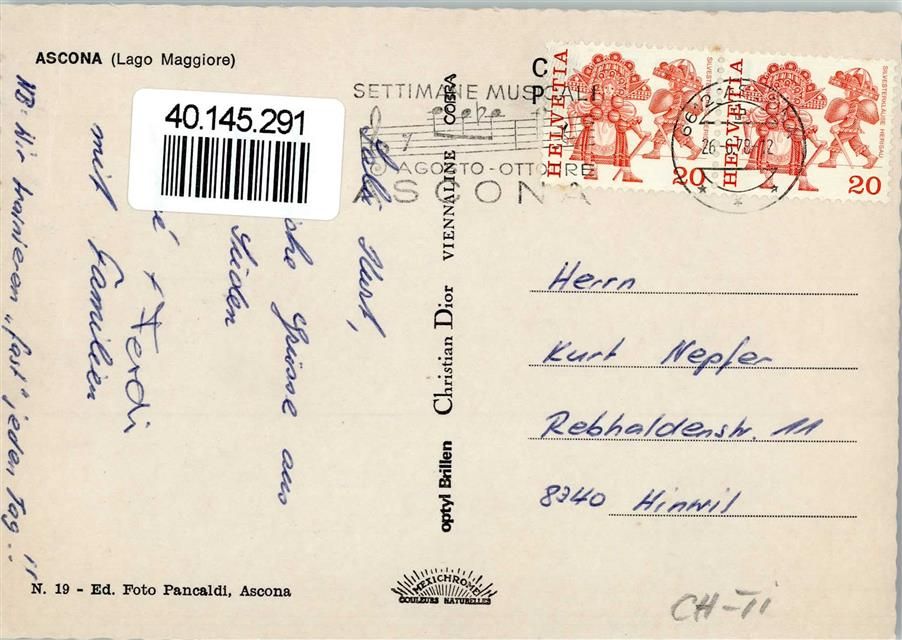 ASCONA (Lago Maggiore)
40.145.291
SETTIMANE MUSICALI
AGOSTO - OTTOBRE
ASCONA
HELVETIA
SILVESTERKLÄUSE HERISAU
20
HELVETIA
SILVESTERKLÄUSE HERISAU
20
26.-9.78-12
Salü Kurt,
Grüsse aus
Süden
+ Ferdi
mit Familien
NB: Wir trainieren "fast" jeden Tag...!!
optyl Brillen Christian Dior VIENNALINE COBRA
Herrn
Kurt Nepfer
Rebhaldenstr. 11
8340 Hinwil
N. 19 - Ed. Foto Pancaldi, Ascona
MEXICHROME
COULEURS NATURELLES
CH-TI